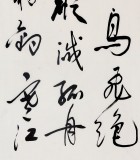 鳥飛絕
蹤滅孤舟
釣寒江